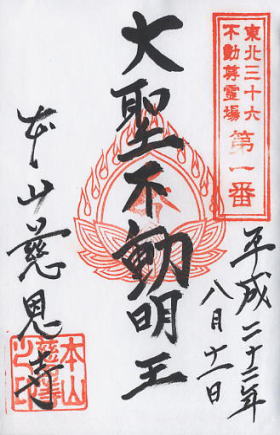 東北三十六
不動尊霊場
第一番
平成二十二年
八月十二日
大聖不動明王
本山慈恩寺